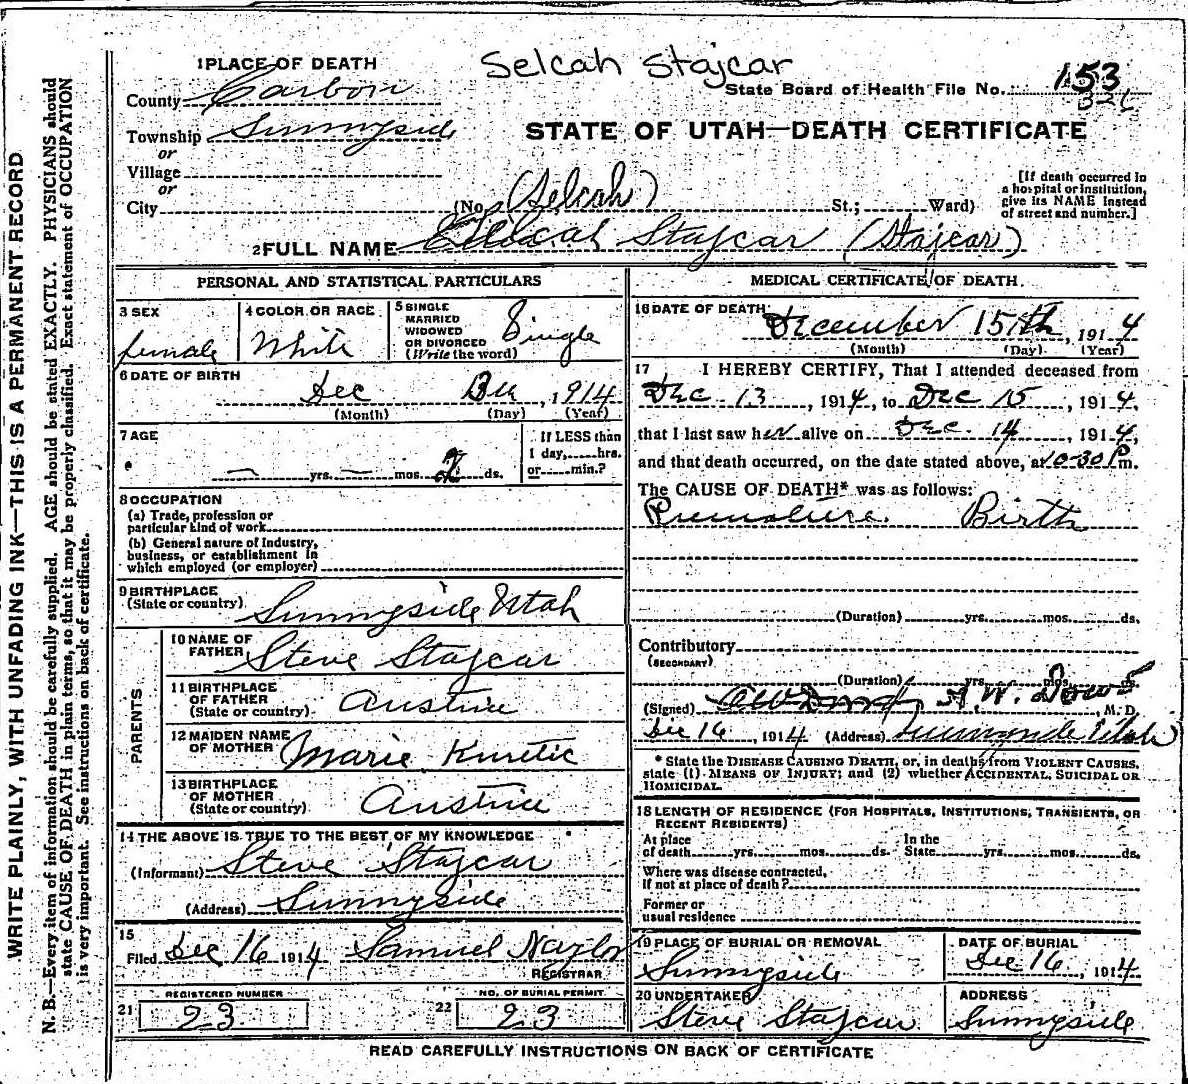 Selcah Stajcar
1 PLACE OF DEATH
County Carbon
State Board of Health File No. 153
326
Township Sunnyside
STATE OF UTAH—DEATH CERTIFICATE
or
Village
or
City (No. (Selcah) St.; Ward)
[If death occurred in
a hospital or institution,
give its NAME instead
of street and number.]
2 FULL NAME Stajcar (Stajcar)
PERSONAL AND STATISTICAL PARTICULARS
3 SEX
female
4 COLOR OR RACE
White
5 SINGLE
MARRIED
WIDOWED
OR DIVORCED
(Write the word)
Single
6 DATE OF BIRTH
Dec , 1914
(Month) (Day) (Year)
7 AGE
— yrs. — mos. 2 ds.
If LESS than
1 day, hrs.
or min.?
8 OCCUPATION
(a) Trade, profession or
particular kind of work
(b) General nature of Industry,
business, or establishment in
which employed (or employer)
9 BIRTHPLACE
(State or country) Sunnyside Utah
PARENTS
10 NAME OF
FATHER Steve Stajcar
11 BIRTHPLACE
OF FATHER
(State or country) Austria
12 MAIDEN NAME
OF MOTHER Marie Kuretic
13 BIRTHPLACE
OF MOTHER
(State or country) Austria
14 THE ABOVE IS TRUE TO THE BEST OF MY KNOWLEDGE
(Informant) Steve Stajcar
(Address) Sunnyside
15
Filed Dec 16 1914 Samuel Naylor
REGISTRAR
21 REGISTERED NUMBER
23
22 NO. OF BURIAL PERMIT
23
MEDICAL CERTIFICATE OF DEATH
16 DATE OF DEATH
December 15th, 1914
(Month) (Day) (Year)
17 I HEREBY CERTIFY, That I attended deceased from
Dec 13, 1914, to Dec 15, 1914,
that I last saw her alive on Dec. 14, 1914,
and that death occurred, on the date stated above, at 10-30 P m.
The CAUSE OF DEATH* was as follows:
Premature Birth
(Duration) yrs. mos. ds.
Contributory
(SECONDARY)
(Duration) yrs. mos. ds.
(Signed) A. W. Dowd, M. D.
Dec 16, 1914 (Address) Sunnyside Utah
* State the DISEASE CAUSING DEATH, or, in deaths from VIOLENT CAUSES,
state (1) MEANS OF INJURY; and (2) whether ACCIDENTAL, SUICIDAL OR
HOMICIDAL.
18 LENGTH OF RESIDENCE (FOR HOSPITALS, INSTITUTIONS, TRANSIENTS, OR
RECENT RESIDENTS)
At place
of death yrs. mos. ds.
In the
State yrs. mos. ds.
Where was disease contracted,
if not at place of death?
Former or
usual residence
19 PLACE OF BURIAL OR REMOVAL
Sunnyside
DATE OF BURIAL
Dec 16, 1914
20 UNDERTAKER
Steve Stajcar
ADDRESS
Sunnyside
READ CAREFULLY INSTRUCTIONS ON BACK OF CERTIFICATE
WRITE PLAINLY, WITH UNFADING INK—THIS IS A PERMANENT RECORD
N. B.—Every item of information should be carefully supplied. AGE should be stated EXACTLY. PHYSICIANS should
state CAUSE OF DEATH in plain terms, so that it may be properly classified. Exact statement of OCCUPATION
is very important. See instructions on back of certificate.